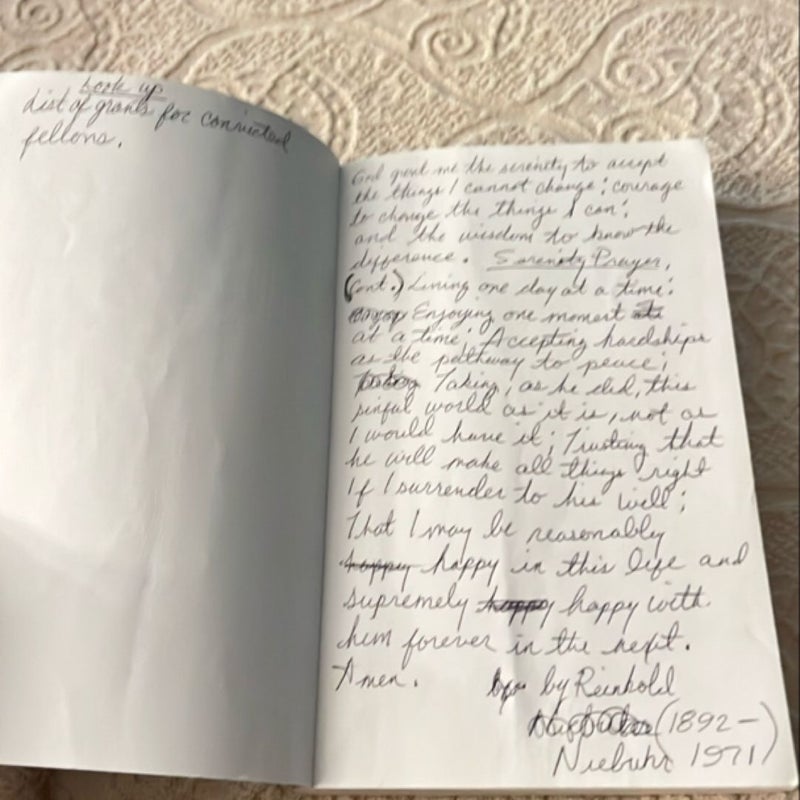 Look up
List of grants for convicted
fellons.
God grant me the serenity to accept
the things I cannot change; courage
to change the things I can;
and the wisdom to know the
difference. Serenity Prayer,
(Cont.) Living one day at a time;
Enjoying one moment
at a time; Accepting hardships
as the pathway to peace;
Taking, as he did, this
sinful world as it is, not as
I would have it; Trusting that
he will make all things right
If I surrender to his will;
That I may be reasonably
happy happy in this life and
supremely happy happy with
him forever in the next.
Amen. by Reinhold
(1892-
Niebuhr 1971)